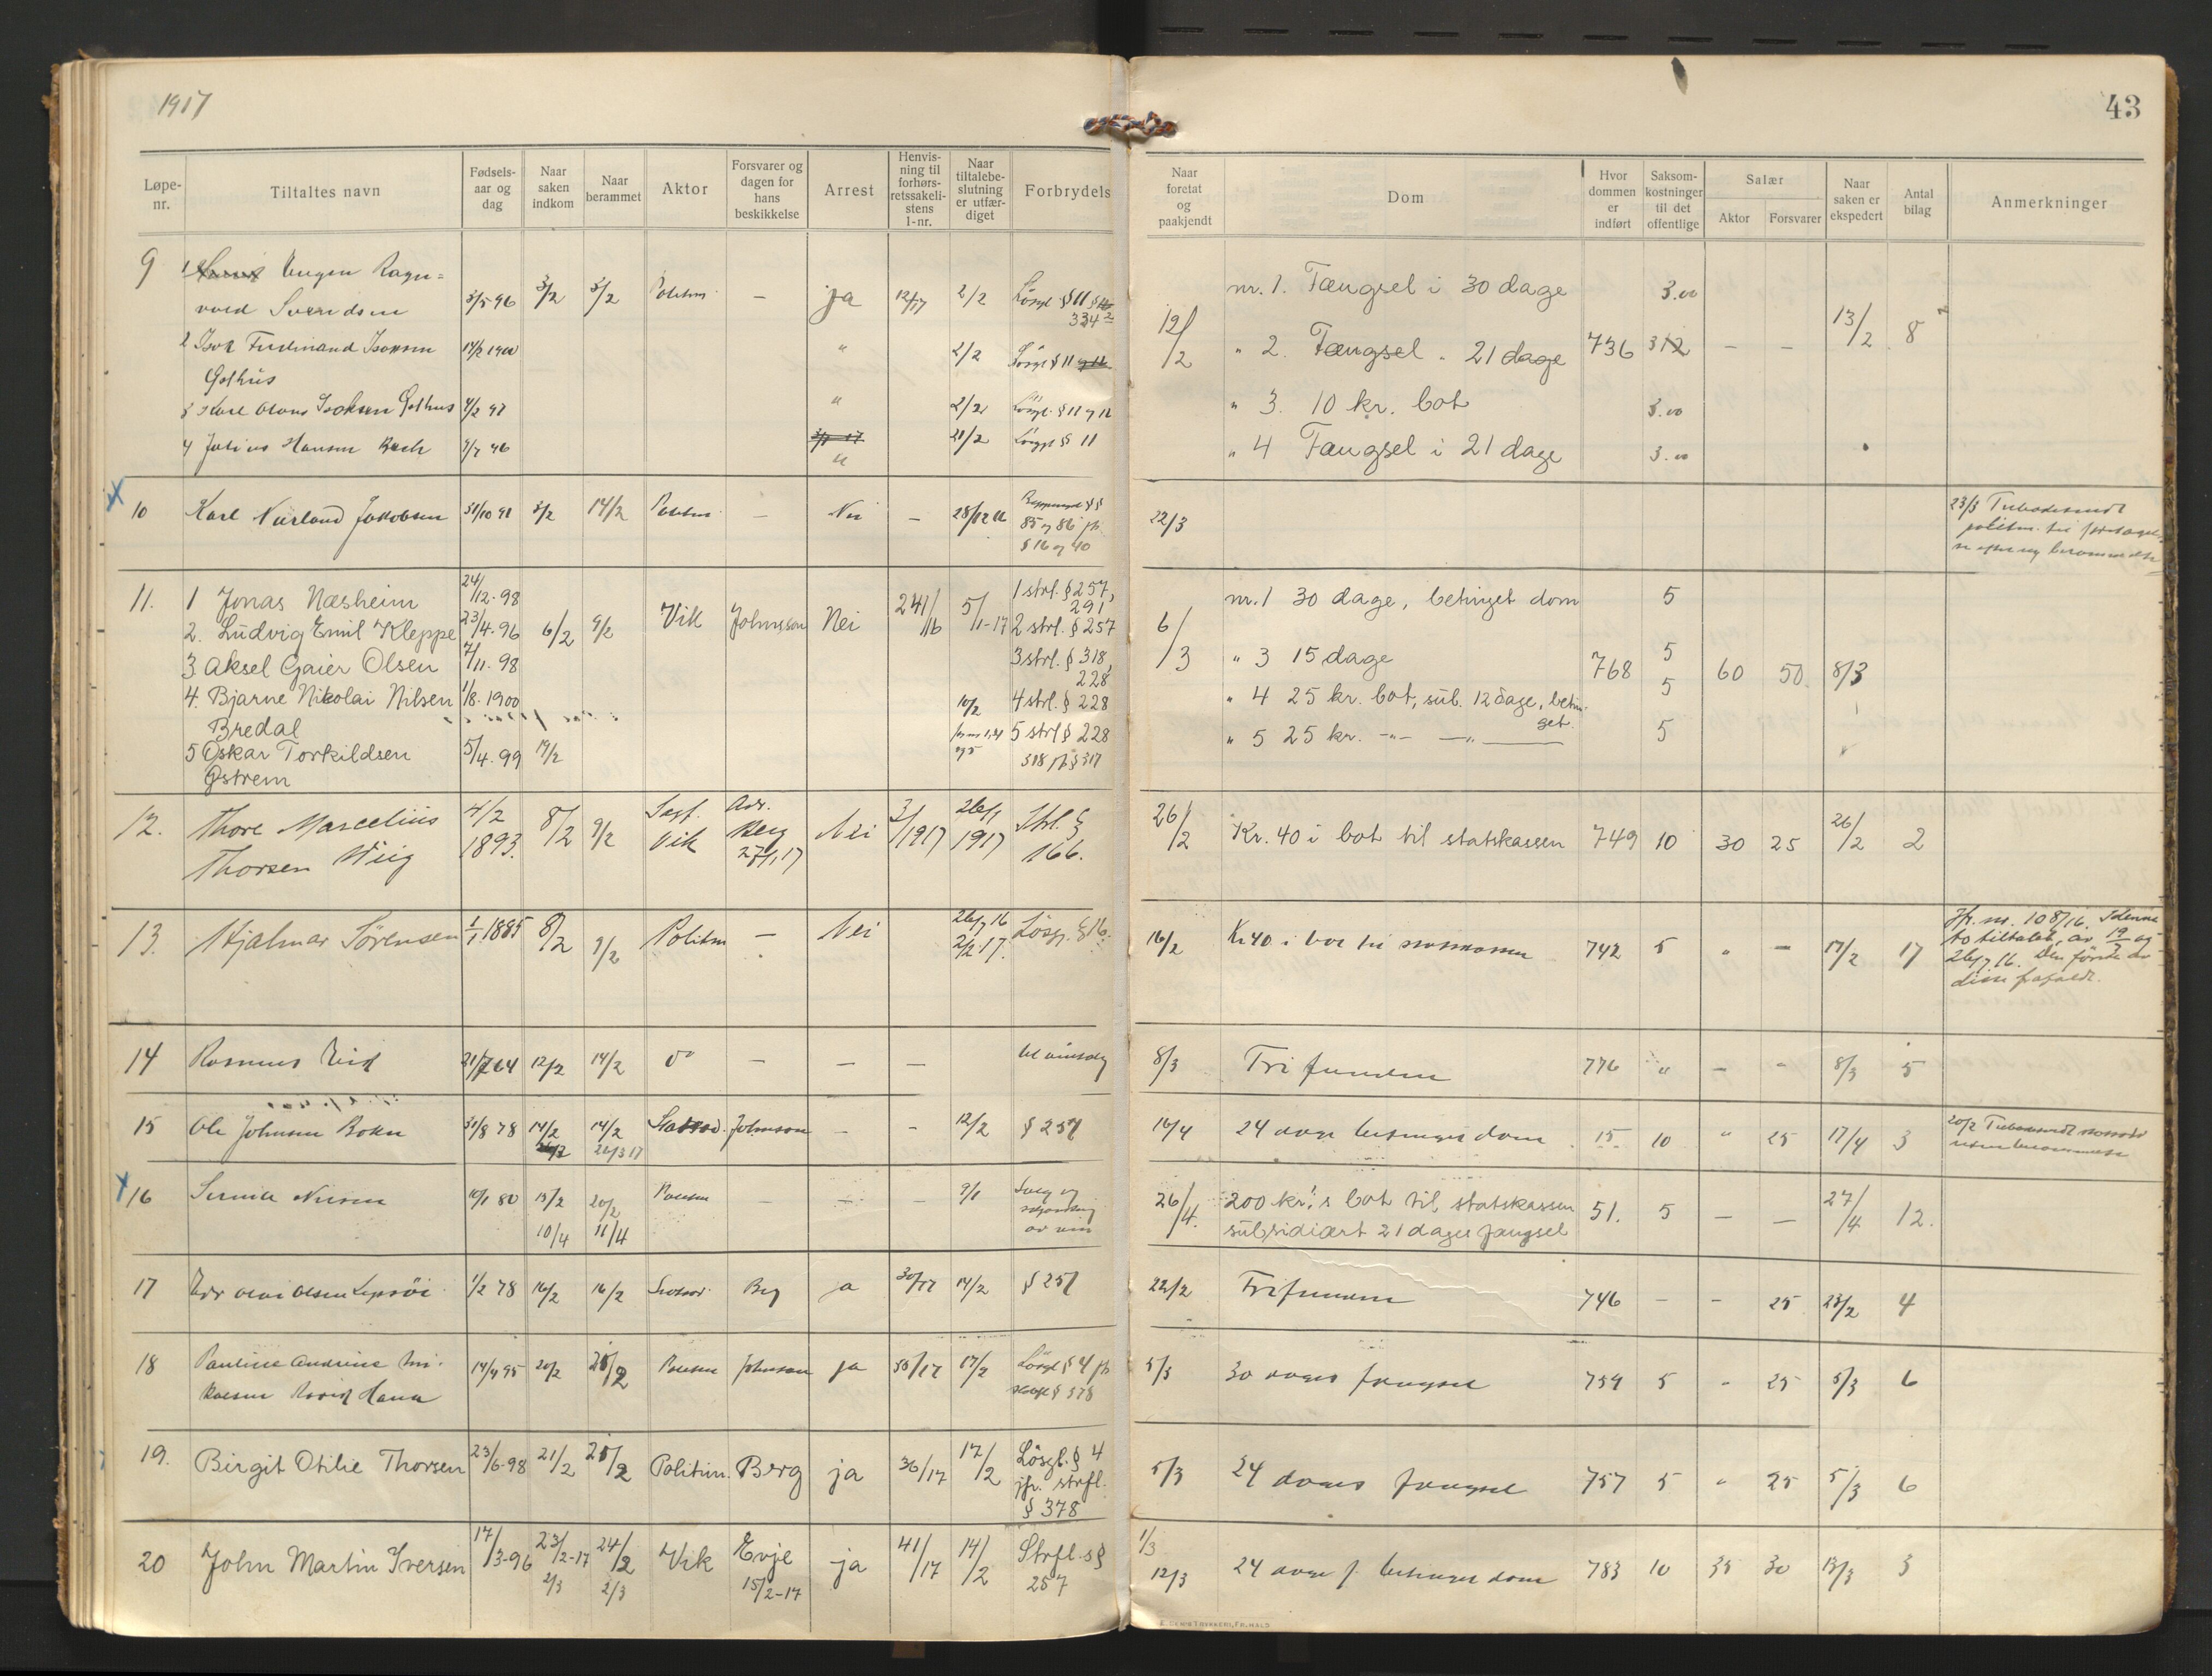 1917
43
Løpe-nr.
Tiltaltes navn
Fødsels-aar og dag
Naar saken indkom
Naar berammet
Aktor
Forsvarer og dagen for hans beskikkelse
Arrest
Henvis-ning til forhørs-retssakeli-stens l-nr.
Naar tiltalebe-slutning er utfær-diget
Forbrydels
Naar foretat og paakjendt
Dom
Hvor dommen er indført
Saksom-kostninger til det offentlige
Salær
Aktor
Forsvarer
Naar saken er ekspedert
Antal bilag
Anmerkninger
9 1 Eugen Ragn= 3/5 96 3/2 3/2 Politm. — ja 12/17 2/2 Løsgl. § 11
vald Svendsen 334 2
2 Isak Ferdinand Isaksen 1900 " 2/2 Løsgl. § 11
Gslhus
3 Karl Olaus Isaksen 4/2 97 " 2/2 Løsgl. § 11 og 16
4 Julius Hansen Bech 9/7 96 " 2/2 Løsgl. § 11
12/2 nr. 1. Fængsel i 30 dage 3.00
" 2. Fængsel " 21 dage 736 — — 13/2 8
" 3. 10 kr. bot 3.00
" 4 Fængsel i 21 dage 3.00
10 Karl Nærland Jakobsen 31/10 91 3/2 14/2 Politm. — Nei — 28/12 16
85 og 86 jfr.
§ 16 og 40
22/3 23/3 Tilbakesendt
politm.
11. 1 Jonas Næsheim 24/12-98 6/2 9/2 Vik Johnsson Nei 241/16 5/1-17 1 strl. § 257, 291
2. Ludvig Emil Kleppe 23/4-96 2 strl. § 257
3 Aksel Gaier Olsen 7/11-98 3 strl. § 318, 228
4. Bjarne Nikolai Nilsen 1/8-1900 10/2 4 strl. § 228
Bredal
5 Oskar Torkildsen 5/4-99 14/2 5 strl § 228
Østrem 318 jfr § 317
6/3 nr. 1 30 dage, betinget dom 5
" 3 15 dage 768 5 60 50 8/3
" 4 25 kr. bot, sub. 12 dage, betin-get. 5
" 5 25 kr. —"— —"— 5
12. Thore Marcelius 4/2 8/2 9/2 Sagf. Adv. Nei 3/1917 26/1 Strl. §
Thorsen Wiig 1893. Vik Berg 27/1 17 1917 166.
26/2 Kr. 40 i bot til statskassen 749 10 30 25 26/2 2
13. Hjalmar Sørensen 1/1 1885 8/2 9/2 Politm — Nei 26/7 16 2/2 17. Løsgl. § 16.
16/2 Kr 40 i bot til statskassen 742 5 " — 17/2 17
Jfr. nr. 108/16. I denne
to tiltalebl. av 19/ og
26/7 16. Den første av
disse frafaldt.
14 Rasmus Eid 21/7 64 12/2 14/2 do — — —
8/3 Frifunden 776 " — " 8/3 5
15 Ole Johnsen Bokn 31/8 78 14/2 14/2 Johnson — — 12/2 § 257
26/3 17
16/4 24 dage betinget dom 15 10 " 25 17/4 3 20/2 Tilbakesendt
uten berammelse
16 Nilsen 10/1 80 15/2 20/2 Politm — — — 9/1 Salg og
10/4 11/4 skjænking
av vin
26/4. 200 kr.'s bot til statskassen 51. 5 — — 27/4 12.
subsidiært 21 dages fængsel
17 Olsen 1/2 78 16/2 16/2 Berg ja 30/17 14/2 § 257
22/2 Frifunden 746 — — 25 23/2 4
18 Pauline Andrine Mi- 14/4 95 20/2 25/2 Politm Johnson ja 35/17 17/2 Løsgl § 4 jfr
kalsen § 378
5/3 30 dages fængsel 754 5 " 25 5/3 6
19. Birgit Otilie Thorsen 23/6-98 21/2 25/2 Politim. Berg ja 36/17 17/2 Løsgl. § 4
jfr. strfl.
§ 378
5/3 24 dages fængsel 757 5 " 25 5/3 6
20 John Martin Iversen 17/3-96 23/2-17 24/2 Vik Evje ja 41/17 14/2 Strfl. s §
2/3 2/3 15/2-17 257
1/3
12/3 24 dage f. betinget dom 783 10 35 30 13/3 3